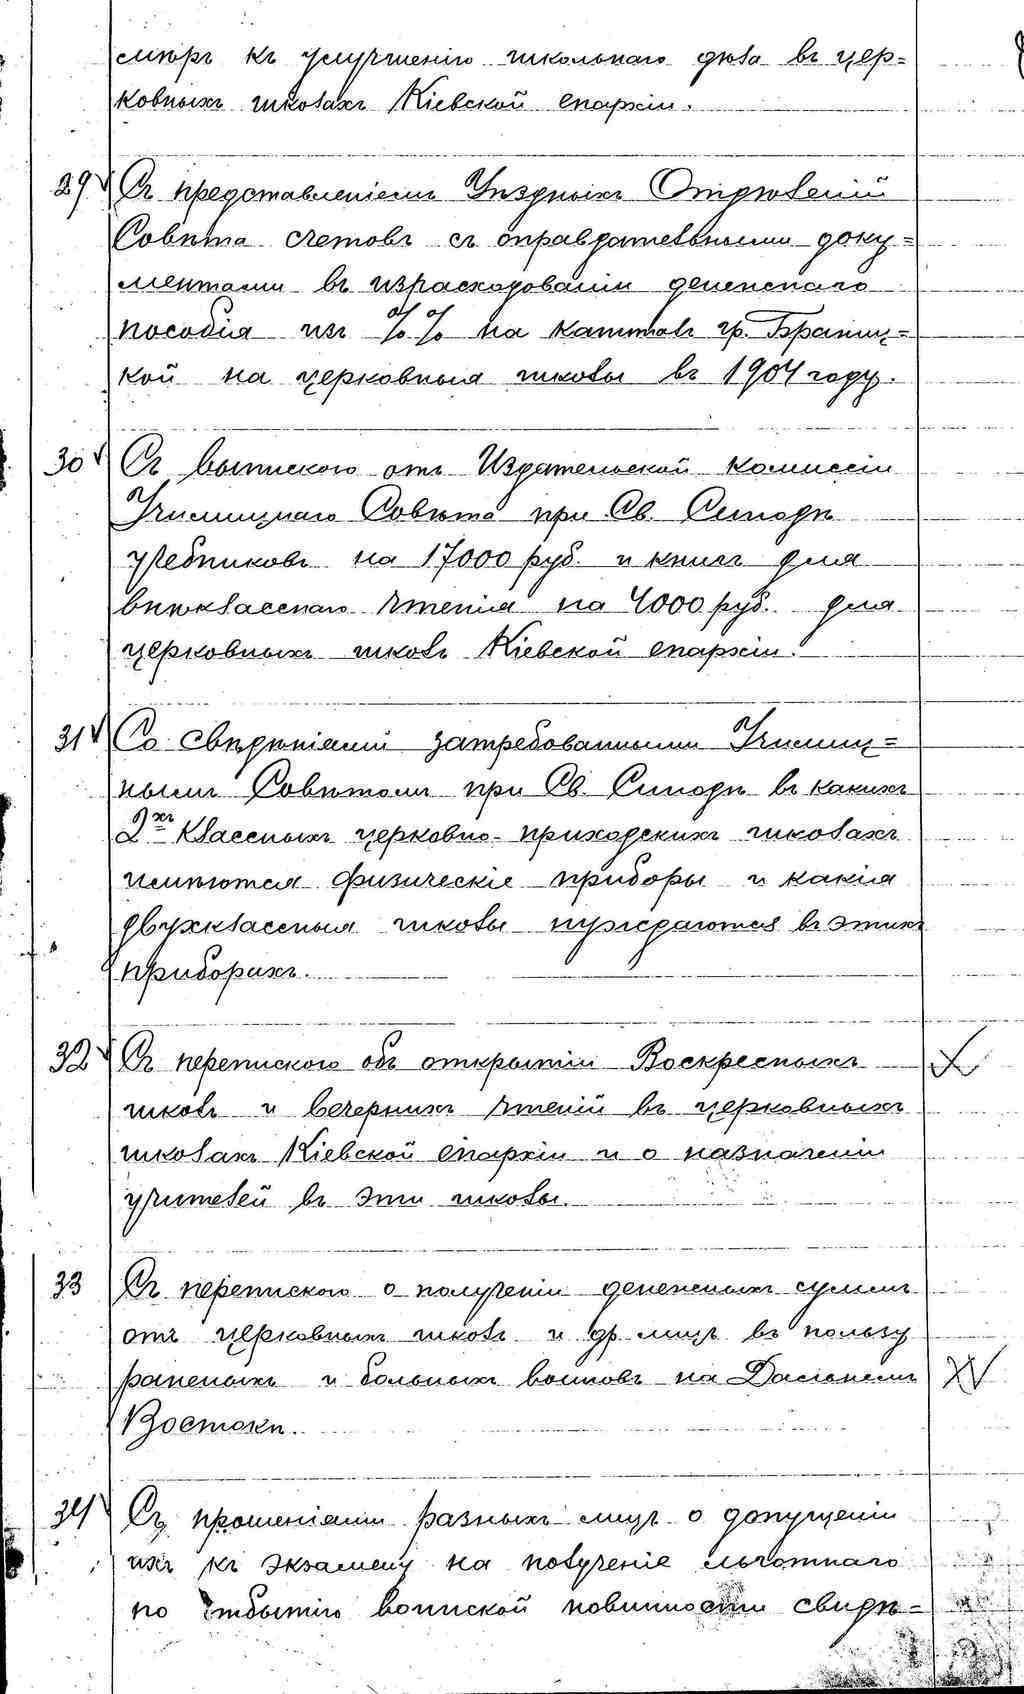 мѣръ къ улучшенію школьнаго дѣла въ цер=
ковныхъ школахъ Кіевской епархіи.
29 Съ представленіемъ Уѣздныхъ Отдѣленій
Совѣта счетовъ съ оправдательными доку=
ментами въ израсходованіи денежнаго
пособія изъ %% на капиталъ гр. Браниц=
кой на церковныя школы въ 1904 году.
30 Съ выпискою отъ Издательской Комиссіи
Училищнаго Совѣта при Св. Синодѣ
учебниковъ на 17000 руб. и книгъ для
внѣкласснаго чтенія на 4000 руб. для
церковныхъ школъ Кіевской епархіи.
31 Со свѣдѣніями затребованными Училищ=
нымъ Совѣтомъ при Св. Синодѣ въ какихъ
2хъ классныхъ церковно-приходскихъ школахъ
имѣются физическіе приборы и какія
двухклассныя школы нуждаются въ этихъ
приборахъ.
32 Съ перепискою объ открытіи Воскресныхъ
школъ и вечернихъ чтеній въ церковныхъ
школахъ Кіевской епархіи и о назначеніи
учителей въ эти школы.
33 Съ перепискою о полученіи денежныхъ суммъ
отъ церковныхъ школъ и др. лицъ въ пользу
раненыхъ и больныхъ воиновъ на Дальнемъ
Востокѣ.
34 Съ прошеніями разныхъ лицъ о допущеніи
ихъ къ экзамену на полученіе льготнаго
по отбытію воинской повинности свидѣ=